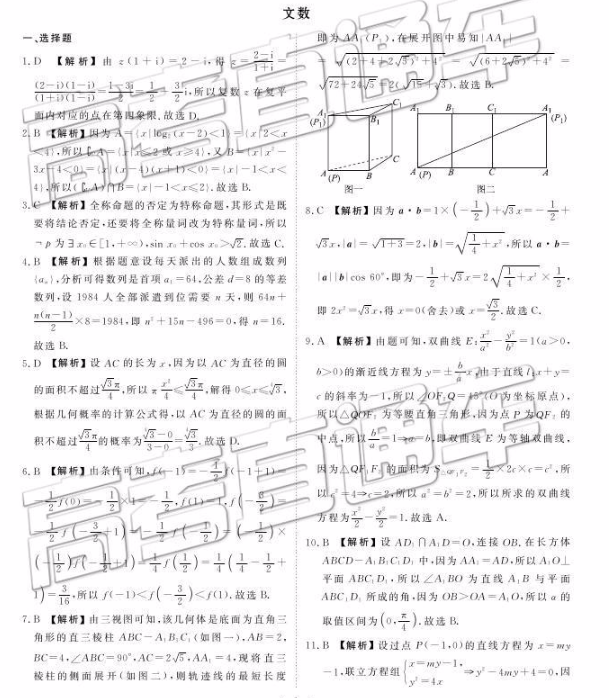 文数
一、选择题
1. D 【解析】由 z(1+i)=2-i,得 z=\frac{2-i}{1+i}=
\frac{(2-i)(1-i)}{(1+i)(1-i)}=\frac{1-3i}{2}=\frac{1}{2}-\frac{3}{2}i,所以复数 z 在复平
面内对应的点在第四象限.故选 D.
2. B 【解析】因为 A={x|log₂(x-2)<1}={x|2<x
<4},所以∁A={x|x≤2 或 x≥4},又 B={x|x²-
3x-4<0}={x|(x-4)(x+1)<0}={x|-1<x<
4},所以(∁A)∩B={x|-1<x≤2}.故选 B.
3. C 【解析】全称命题的否定为特称命题,其形式是既
要将结论否定,还要将全称量词改为特称量词,所以
¬p 为∃x₀∈[1,+∞),sin x₀+cos x₀>√2.故选 C.
4. B 【解析】根据题意设每天派出的人数组成数列
{aₙ},分析可得数列是首项 a₁=64,公差 d=8 的等差
数列,设 1984 人全部派遣到位需要 n 天,则 64n+
\frac{n(n-1)}{2}×8=1984,即 n²+15n-496=0,得 n=16.
故选 B.
5. D 【解析】设 AC 的长为 x,因为以 AC 为直径的圆
的面积不超过\frac{√3π}{4},所以 π\frac{x²}{4}≤\frac{√3π}{4},解得 0≤x≤
根据几何概率的计算公式得,以 AC 为直径的圆的面
积不超过\frac{√3π}{4}的概率为 故选 D.
6. B 【解析】由条件可知,f(-1)=-\frac{1}{2}f(-1+1)=
-\frac{1}{2}f(0)=-\frac{1}{2}×1=-\frac{1}{2},f(1)=1,f(-\frac{3}{2})=
-\frac{1}{2}f(-\frac{3}{2}+1)=-\frac{1}{2}f(-\frac{1}{2})=(-\frac{1}{2})×
(-\frac{1}{2})f(-\frac{1}{2}+1)=\frac{1}{4}f(\frac{1}{2})=\frac{1}{4}(\frac{1}{4}-\frac{1}{2}+
1)=\frac{3}{16},所以 f(-1)<f(-\frac{3}{2})<f(1).故选 B.
7. B 【解析】由三视图可知,该几何体是底面为直角三
角形的直三棱柱 ABC-A₁B₁C₁(如图一),AB=2,
BC=4,∠ABC=90°,AC=2√5,AA₁=4,现将直三
棱柱的侧面展开(如图二),则轨迹线的最短长度
即为 AA₁(P₁),在展开图中易知|AA₁|
=√((2+4+2√5)²+4²)=√((6+2√5)²+4²)=
√(72+24√5)=2(√15+√3).故选 B.
A₁ C₁ A₁ B₁ C₁ A₁
(P₁) B₁ (P₁)
A C
(P) B A B C A
(P)
图一 图二
8. C 【解析】因为 a·b=1×(-\frac{1}{2})+√3x=-\frac{1}{2}+
√3x,|a|=√(1+3)=2,|b|=√(\frac{1}{4}+x²),所以 a·b=
|a||b|cos 60°,即为-\frac{1}{2}+√3x=2√(\frac{1}{4}+x²)×\frac{1}{2},
即 2x²=√3x,得 x=0(舍去)或 x=\frac{√3}{2}.故选 C.
9. A 【解析】由题可知,双曲线 E:\frac{x²}{a²}-\frac{y²}{b²}=1(a>0,
b>0)的渐近线方程为 y=±\frac{b}{a}x,由于直线 l:x+y=
c 的斜率为-1,所以∠OF₂Q=45°(O 为坐标原点),
所以△QOF₂ 为等腰直角三角形,因为点 P 为 QF₂ 的
中点,所以\frac{b}{a}=1⇒a=b,即双曲线 E 为等轴双曲线,
因为△QF₁F₂ 的面积为 S=\frac{1}{2}×2c×c=c²,所
以 c²=4⇒c=2,所以 a²=b²=2,所以所求的双曲线
方程为\frac{x²}{2}-\frac{y²}{2}=1.故选 A.
10. B 【解析】设 AD₁∩A₁D=O,连接 OB,在长方体
ABCD-A₁B₁C₁D₁ 中,因为 AA₁=AD,所以 A₁O⊥
平面 ABC₁D₁,所以∠A₁BO 为直线 A₁B 与平面
ABC₁D₁ 所成的角,因为 OB>OA=A₁O,所以 α 的
取值区间为(0,\frac{π}{4}).故选 B.
11. B 【解析】设过点 P(-1,0)的直线方程为 x=my
-1,联立方程组{x=my-1, y²=4x⇒y²-4my+4=0,因